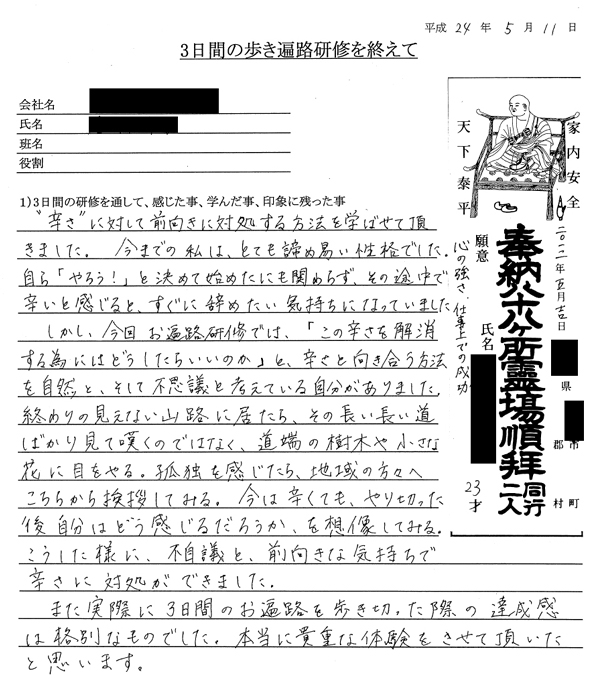 平成 24 年 5 月 11 日
3日間の歩き遍路研修を終えて
会社名
氏名
班名
役割
1)3日間の研修を通して、感じた事、学んだ事、印象に残った事
"辛さ"に対して前向きに対処する方法を学ばせて頂
きました。 今までの私は、とても諦め易い性格でした。
自ら「やろう!」と決めて始めたにも関めらず、その途中で
辛いと感じると、すぐに辞めたい気持ちになっていました
しかし、今回お遍路研修では、「この辛さを解消
する為にはどうしたらいいのか」と、辛さと向き合う方法
を自然と、そして不思議と考えている自分がありました。
終わりの見えない山路に居たら、その長い長い道
ばかり見て嘆くのではなく、道端の樹木や小さな
花に目をやる。孤独を感じたら、地域の方々へ
こちらから挨拶してみる。 今は辛くても、やり切った
後自分はどう感じるだろうか、を想像してみる。
こうした様に、不自議と、前向きな気持ちで
辛さに対処ができました。
また実際に3日間のお遍路を歩き切った際の達成感
は格別なものでした。本当に貴重な体験をさせて頂いた
と思います。
家内安全
天下泰平
二〇一二年五月吉日
奉納八十八ヶ所霊場順拝 同行二人
願意 心の強さ、仕事上での成功
県
市
郡
町
村
氏名
23才